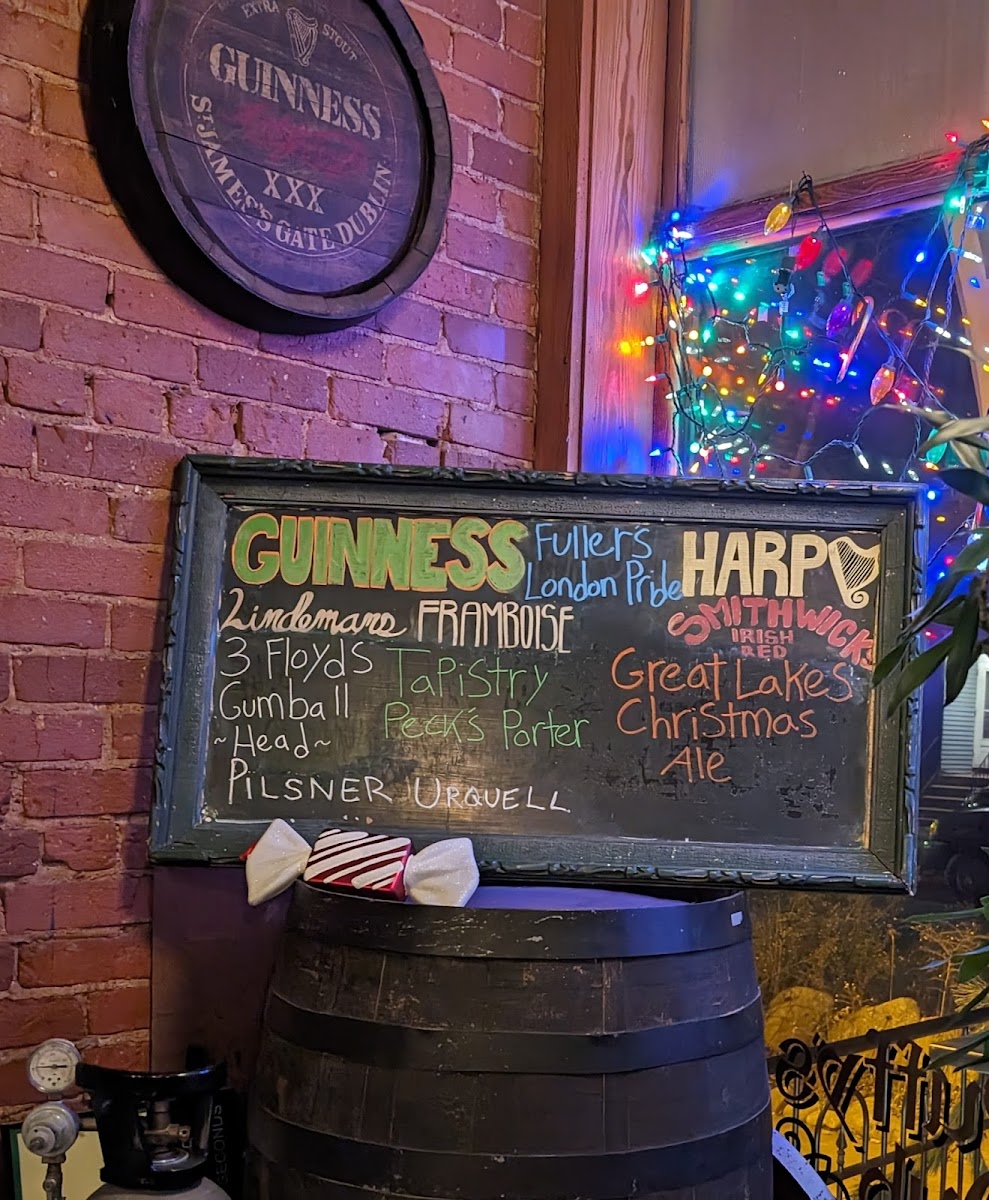 EXTRA STOUT
GUINNESS
XXX
ST. JAMES'S GATE DUBLIN
GUINNESS
Fuller's
London Pride
HARP
Lindemans FRAMBOISE
SMITHWICKS
IRISH
RED
3 Floyds
Gumball
~Head~
Tapistry
Peck's Porter
Great Lakes
Christmas
Ale
PILSNER URQUELL